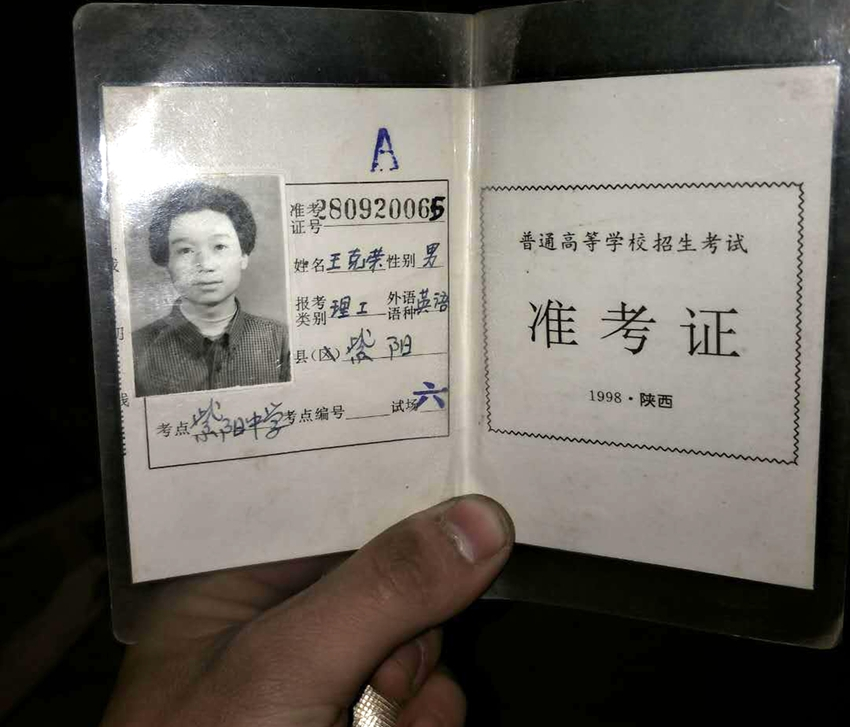 A
准考证号 2809200665
姓名 王克荣 性别 男
报考类别 理工 外语语种 英语
县(区) 紫阳
考点 紫阳中学 考点编号 试场 六
普通高等学校招生考试
准考证
1998·陕西